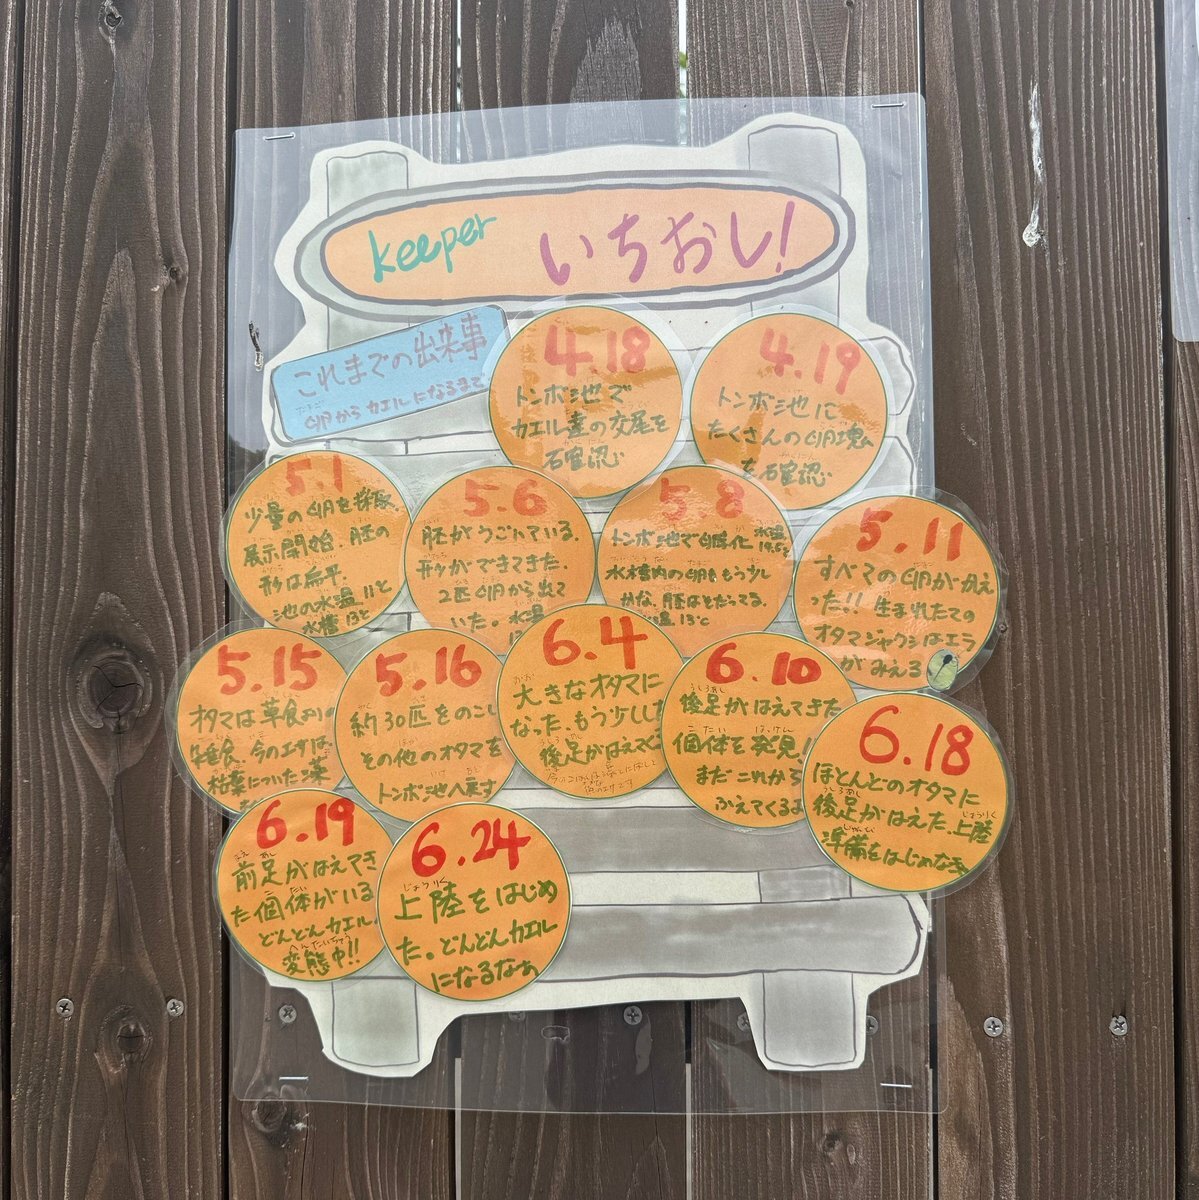 keeper いちおし!
これまでの出来事
卵からカエルになるまで
4.18
トンボ池で
カエル達の交尾を
確認
4.19
トンボ池に
たくさんの卵塊
を確認
5.1
少量の卵を採取。
展示開始。胚の
形は扁平。
池の水温11℃
水槽13℃
5.6
胚がうごいている。
形ができてきた。
2匹卵から出て
いた。水温
5.8
トンボ池で孵化 水温
水槽内の卵ももう少し
かな。胚はそだってる。
水温13℃
5.11
すべての卵がかえ
った!!生まれたての
オタマジャクシはエラ
がみえる
5.15
オタマは草食よりの
雑食。今のエサは、
枯葉についた藻
5.16
約30匹をのこし
その他のオタマを
トンボ池へ戻す
6.4
大きなオタマに
なった、もう少しした
後足がはえてく
6.10
後足がはえてきた
個体を発見!
まだこれから
ふえてくるよ
6.18
ほとんどのオタマに
後足がはえた。上陸
準備をはじめなきゃ
6.19
前足がはえてき
た個体がいる
どんどんカエル
変態中!!
6.24
上陸をはじめ
た。どんどんカエル
になるなぁ